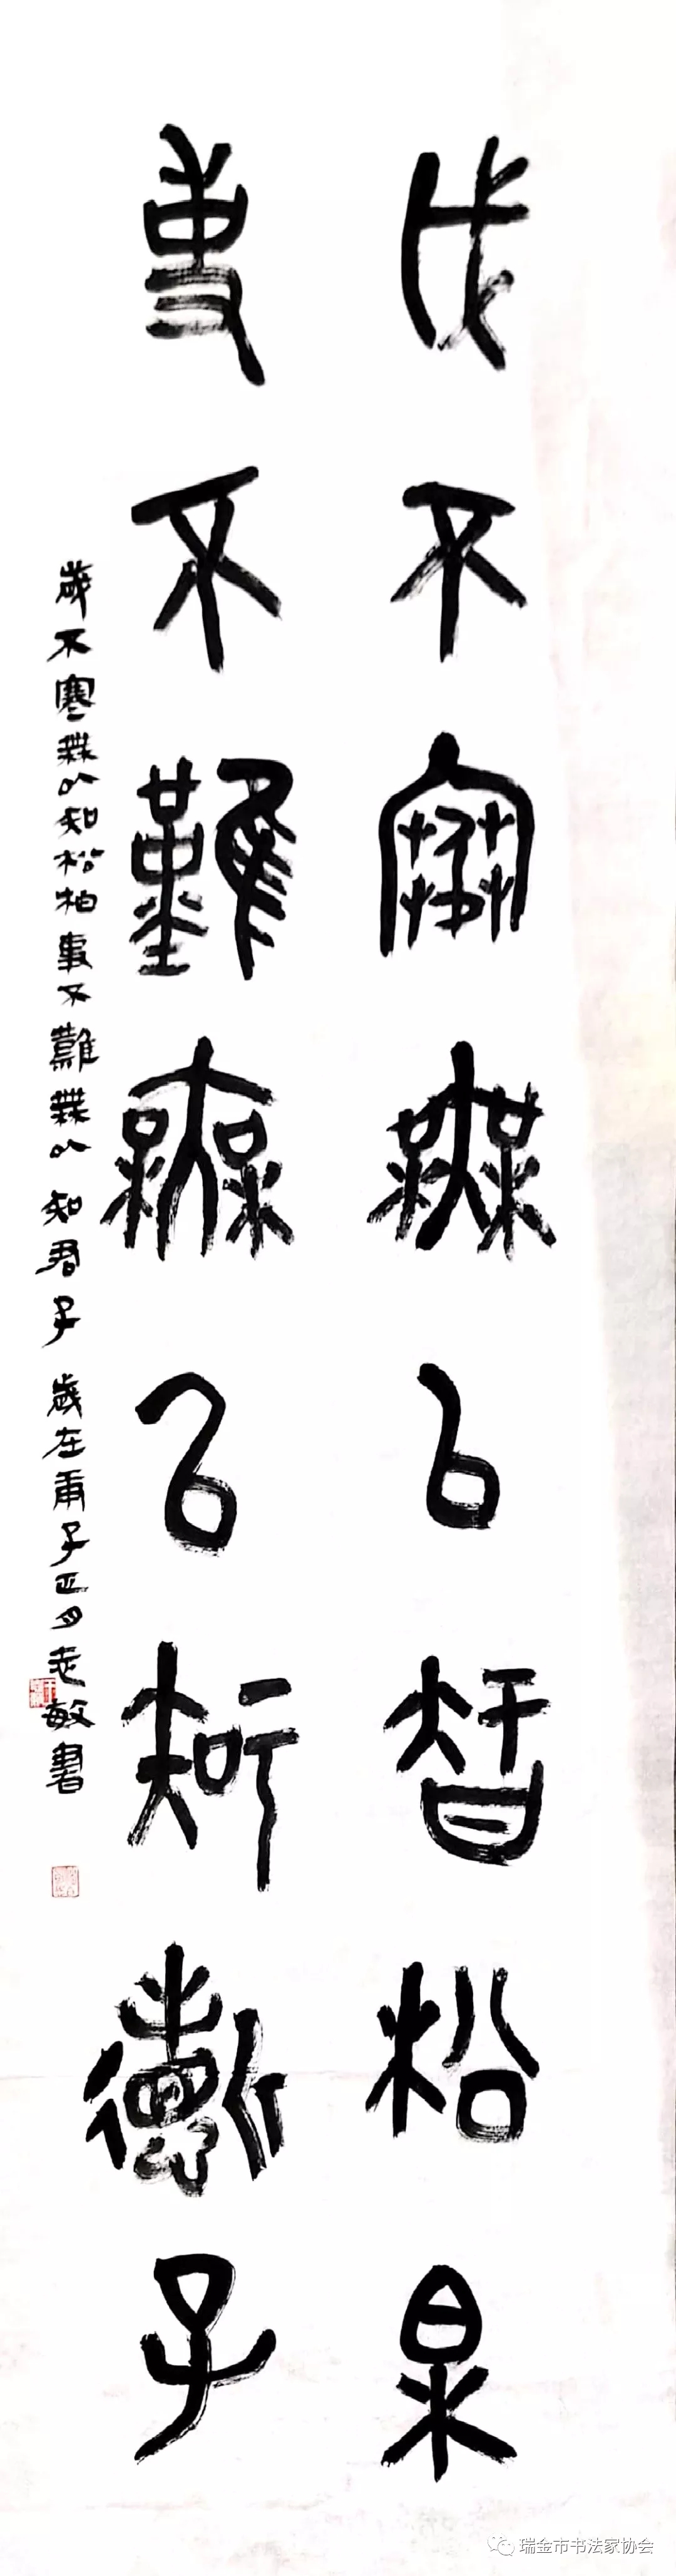 歲不寒無以知松柏
事不難無以知君子
歲不寒無以知松柏事不難無以知君子 歲在庚子正月志敏書
瑞金市书法家协会